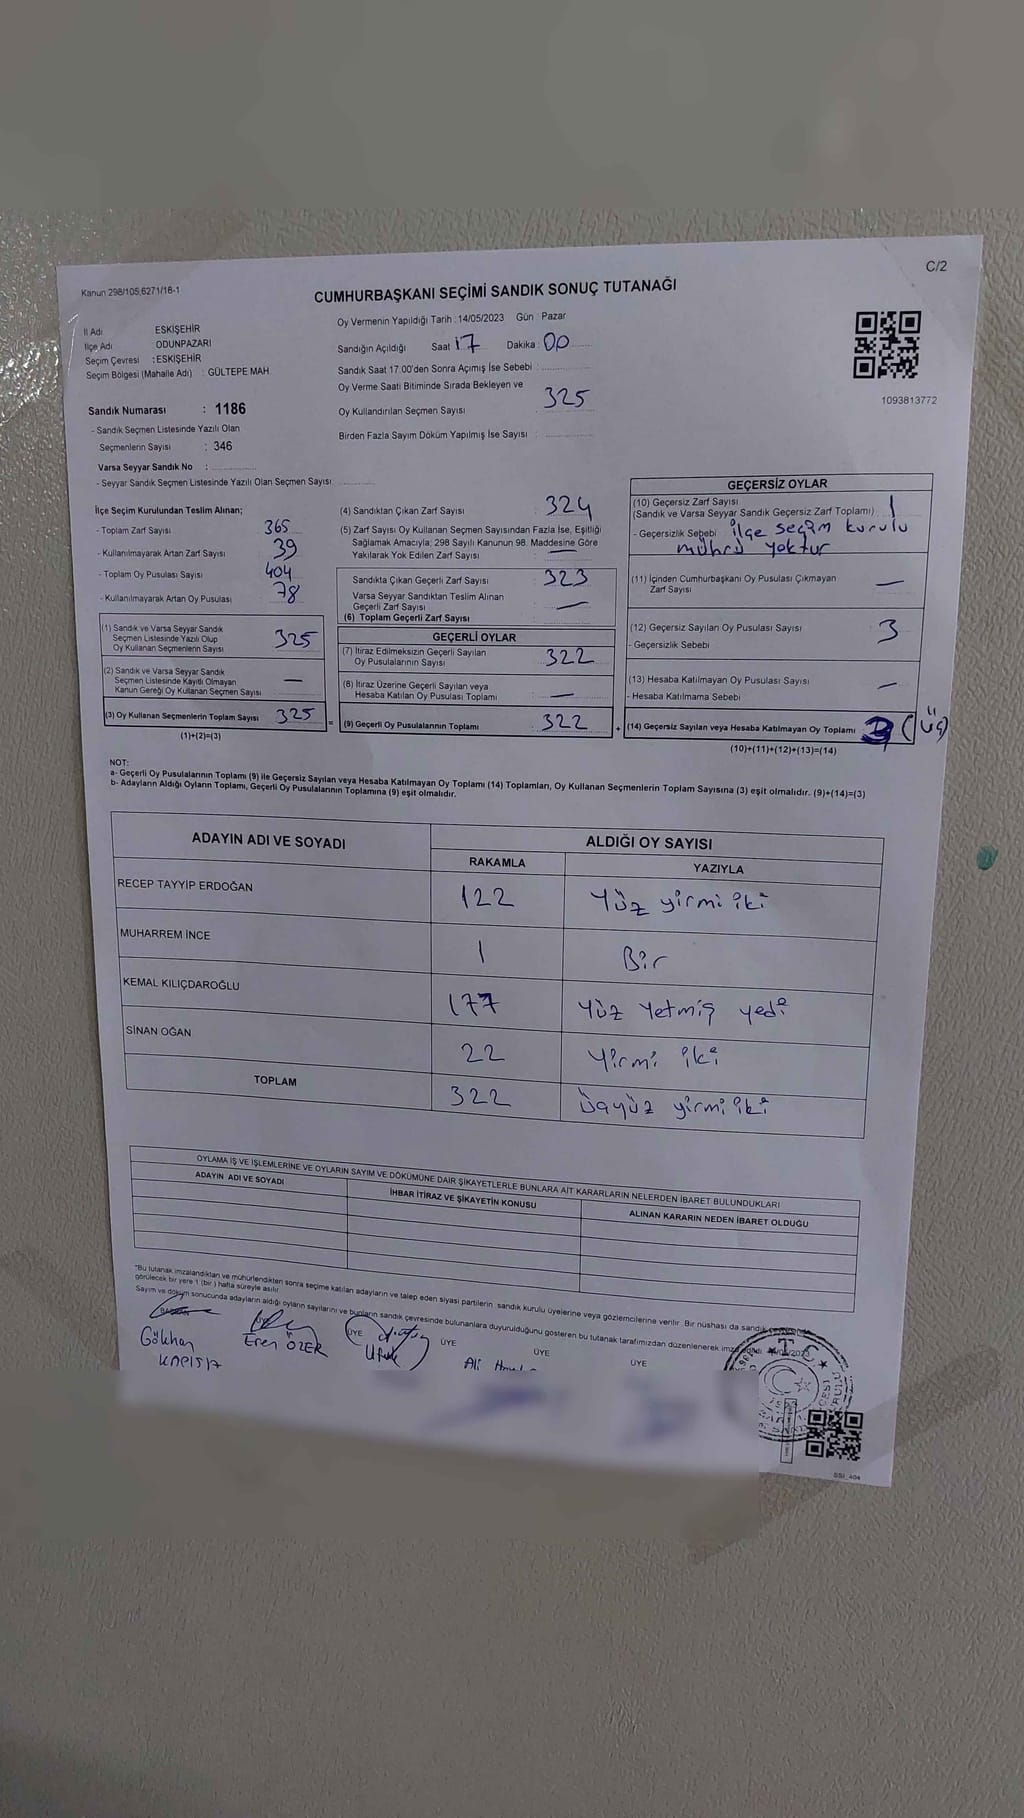 C/2
Kanun 298/105,6271/18-1
CUMHURBAŞKANI SEÇİMİ SANDIK SONUÇ TUTANAĞI
İl Adı ESKİŞEHİR
İlçe Adı ODUNPAZARI
Seçim Çevresi : ESKİŞEHİR
Seçim Bölgesi (Mahalle Adı) : GÜLTEPE MAH.
Sandık Numarası : 1186
- Sandık Seçmen Listesinde Yazılı Olan
Seçmenlerin Sayısı : 346
Varsa Seyyar Sandık No :
- Seyyar Sandık Seçmen Listesinde Yazılı Olan Seçmen Sayısı:
Oy Vermenin Yapıldığı Tarih : 14/05/2023 Gün : Pazar
Sandığın Açıldığı Saat 17 Dakika : 00
Sandık Saat 17.00'den Sonra Açımış İse Sebebi :
Oy Verme Saati Bitiminde Sırada Bekleyen ve
Oy Kullandırılan Seçmen Sayısı : 325
Birden Fazla Sayım Döküm Yapılmış İse Sayısı :
1093813772
İlçe Seçim Kurulundan Teslim Alınan;
- Toplam Zarf Sayısı 365
- Kullanılmayarak Artan Zarf Sayısı 39
- Toplam Oy Pusulası Sayısı 404
- Kullanılmayarak Artan Oy Pusulası 78
(1) Sandık ve Varsa Seyyar Sandık
Seçmen Listesinde Yazılı Olup
Oy Kullanan Seçmenlerin Sayısı 325
(2) Sandık ve Varsa Seyyar Sandık
Seçmen Listesinde Kayıtlı Olmayan
Kanun Gereği Oy Kullanan Seçmen Sayısı —
(3) Oy Kullanan Seçmenlerin Toplam Sayısı 325
(1)+(2)=(3)
(4) Sandıktan Çıkan Zarf Sayısı 324
(5) Zarf Sayısı Oy Kullanan Seçmen Sayısından Fazla İse, Eşitliği
Sağlamak Amacıyla; 298 Sayılı Kanunun 98. Maddesine Göre
Yakılarak Yok Edilen Zarf Sayısı : —
Sandıkta Çıkan Geçerli Zarf Sayısı 323
Varsa Seyyar Sandıktan Teslim Alınan
Geçerli Zarf Sayısı —
(6) Toplam Geçerli Zarf Sayısı
GEÇERLİ OYLAR
(7) İtiraz Edilmeksizin Geçerli Sayılan
Oy Pusulalarının Sayısı 322
(8) İtiraz Üzerine Geçerli Sayılan veya
Hesaba Katılan Oy Pusulası Toplamı —
= (9) Geçerli Oy Pusulalarının Toplamı 322 +
GEÇERSİZ OYLAR
(10) Geçersiz Zarf Sayısı
(Sandık ve Varsa Seyyar Sandık Geçersiz Zarf Toplamı) 1
- Geçersizlik Sebebi ilçe seçim kurulu
mührü yoktur
(11) İçinden Cumhurbaşkanı Oy Pusulası Çıkmayan
Zarf Sayısı —
(12) Geçersiz Sayılan Oy Pusulası Sayısı 3
- Geçersizlik Sebebi
(13) Hesaba Katılmayan Oy Pusulası Sayısı —
- Hesaba Katılmama Sebebi
(14) Geçersiz Sayılan veya Hesaba Katılmayan Oy Toplamı 3 (üç)
(10)+(11)+(12)+(13)=(14)
NOT:
a- Geçerli Oy Pusulalarının Toplamı (9) ile Geçersiz Sayılan veya Hesaba Katılmayan Oy Toplamı (14) Toplamları, Oy Kullanan Seçmenlerin Toplam Sayısına (3) eşit olmalıdır. (9)+(14)=(3)
b- Adayların Aldığı Oyların Toplamı, Geçerli Oy Pusulalarının Toplamına (9) eşit olmalıdır.
ADAYIN ADI VE SOYADI ALDIĞI OY SAYISI
RAKAMLA YAZIYLA
RECEP TAYYİP ERDOĞAN 122 Yüz yirmi iki
MUHARREM İNCE 1 Bir
KEMAL KILIÇDAROĞLU 177 Yüz Yetmiş yedi
SİNAN OĞAN 22 Yirmi iki
TOPLAM 322 üçyüz yirmi iki
OYLAMA İŞ VE İŞLEMLERİNE VE OYLARIN SAYIM VE DÖKÜMÜNE DAİR ŞİKAYETLERLE BUNLARA AİT KARARLARIN NELERDEN İBARET BULUNDUKLARI
ADAYIN ADI VE SOYADI İHBAR İTİRAZ VE ŞİKAYETİN KONUSU ALINAN KARARIN NEDEN İBARET OLDUĞU
*Bu tutanak imzalandıktan ve mühürlendikten sonra seçime katılan adayların ve talep eden siyasi partilerin sandık kurulu üyelerine veya gözlemcilerine verilir. Bir nüshası da sandık
görülecek bir yere 1 (bir) hafta süreyle asılır.
Sayım ve döküm sonucunda adayların aldığı oyların sayılarını ve bunların sandık çevresinde bulunanlara duyurulduğunu gösteren bu tutanak tarafımızdan düzenlenerek
ÜYE ÜYE ÜYE ÜYE
Gökhan Eren ÖZER Ufuk Ali
T.C.
SSI_404